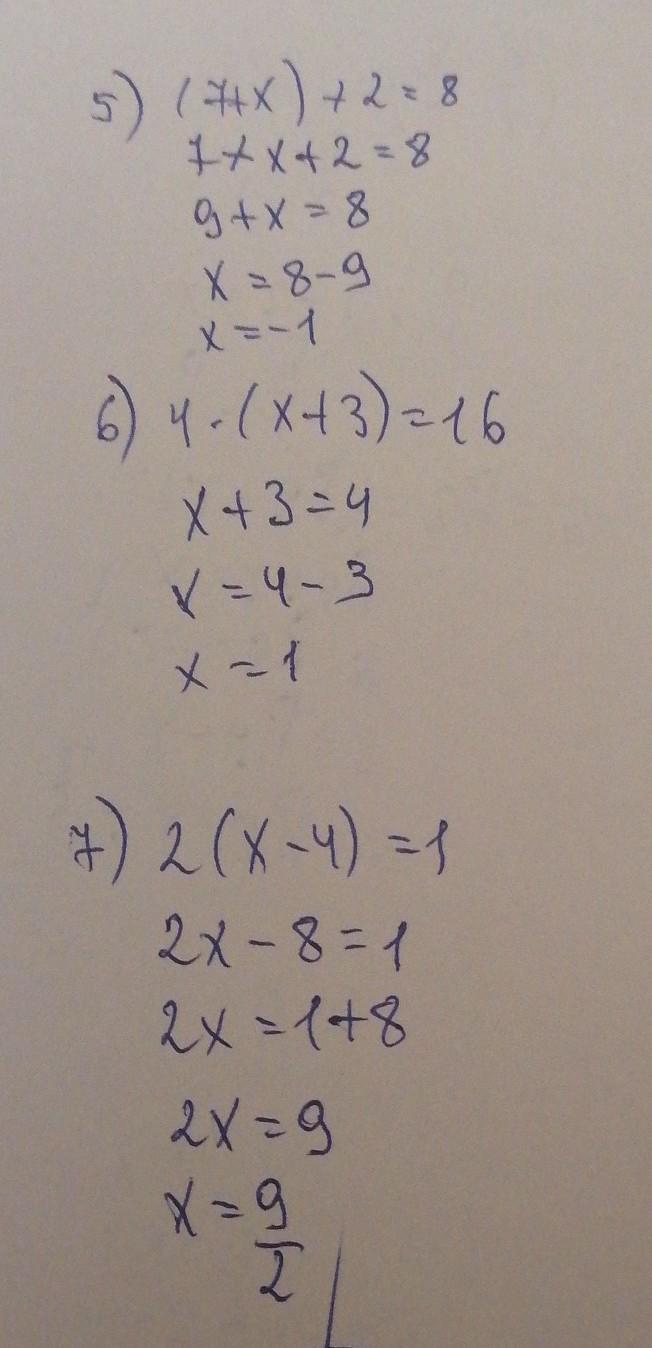 5) (7+x) + 2 = 8
7 + x + 2 = 8
9 + x = 8
x = 8 - 9
x = -1
6) 4 · (x + 3) = 16
x + 3 = 4
x = 4 - 3
x = 1
7) 2 (x - 4) = 1
2x - 8 = 1
2x = 1 + 8
2x = 9
x = 9/2